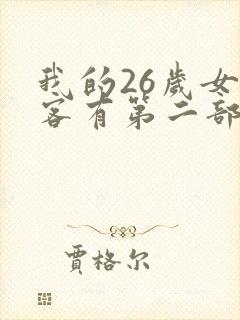 我的26歲女
客有第二部
賈格尔